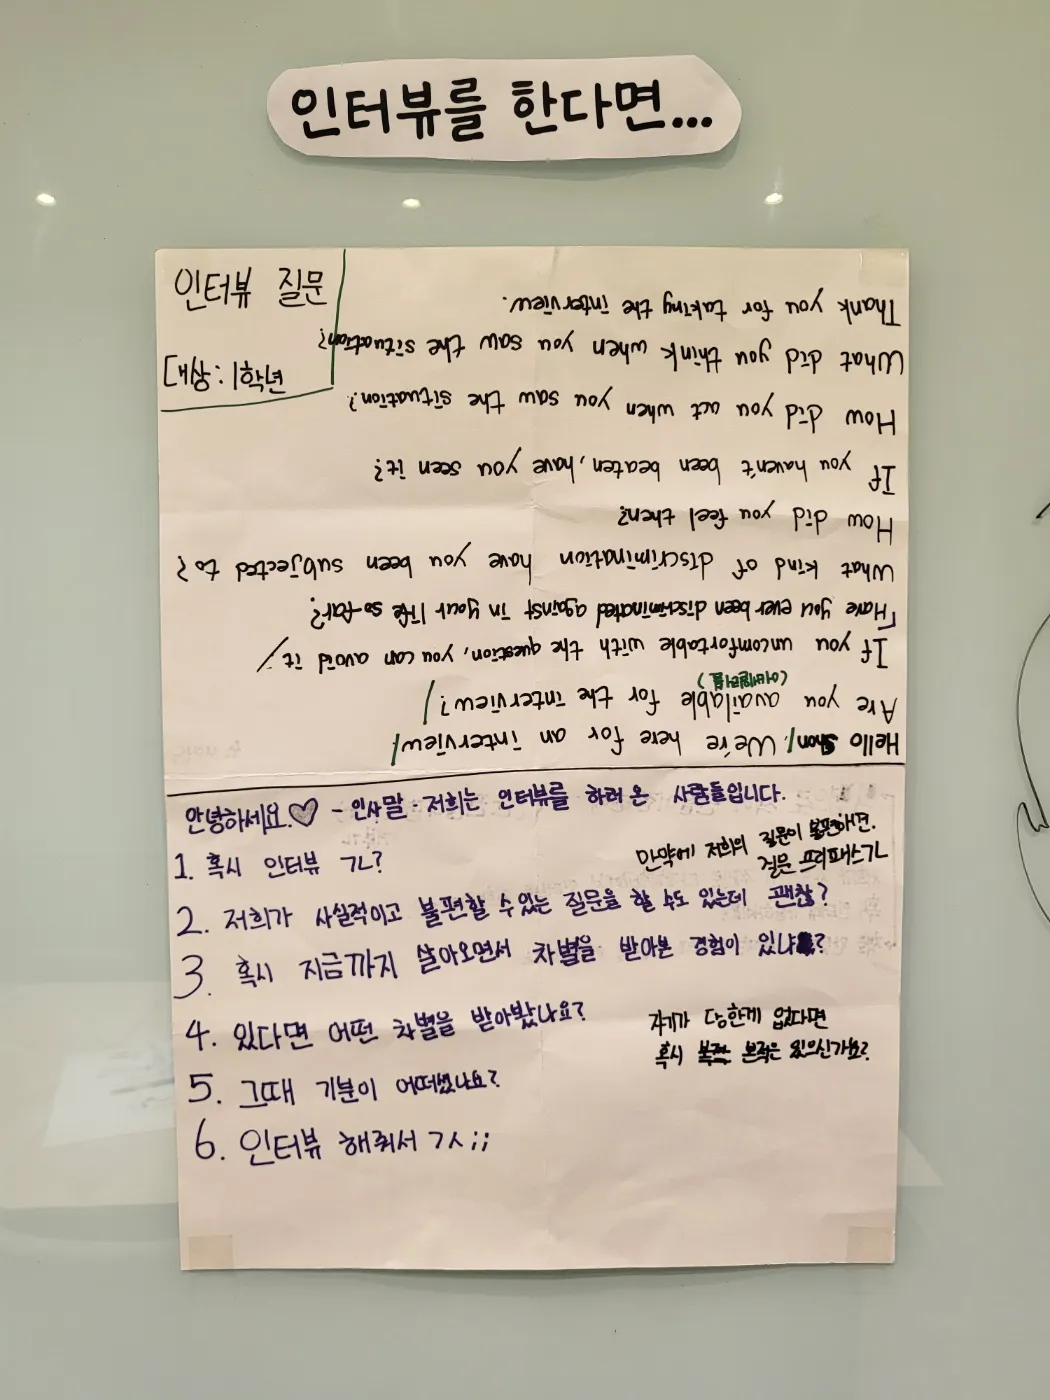 인터뷰를 한다면...
인터뷰 질문
대상:1학년
Hello Shon! We're here for an interview!
Are you available for the interview?
(어베일러블)
If you uncomfortable with the question, you can avoid it
「Have you ever been discriminated against in your life so far?
What kind of discrimination have you been subjected to?
How did you feel then?
If you haven't been beaten, have you seen it?
How did you act when you saw the situation?
What did you think when you saw the situation?
Thank you for taking the interview.
안녕하세요.♡ - 인사말 - 저희는 인터뷰를 하러 온 사람들입니다.
1. 혹시 인터뷰 ㄱㄴ?
만약에 저희의 질문이 불편하면.
질문 프리패스 ㄱㄴ
2. 저희가 사실적이고 불편할 수 있는 질문을 할 수도 있는데 괜찮?
3. 혹시 지금까지 살아오면서 차별을 받아본 경험이 있나?
4. 있다면 어떤 차별을 받아봤나요?
자기가 당한게 없다면
혹시 본적은 있으신가요?
5. 그때 기분이 어떠셨나요?
6. 인터뷰 해줘서 ㄱㅅ;;